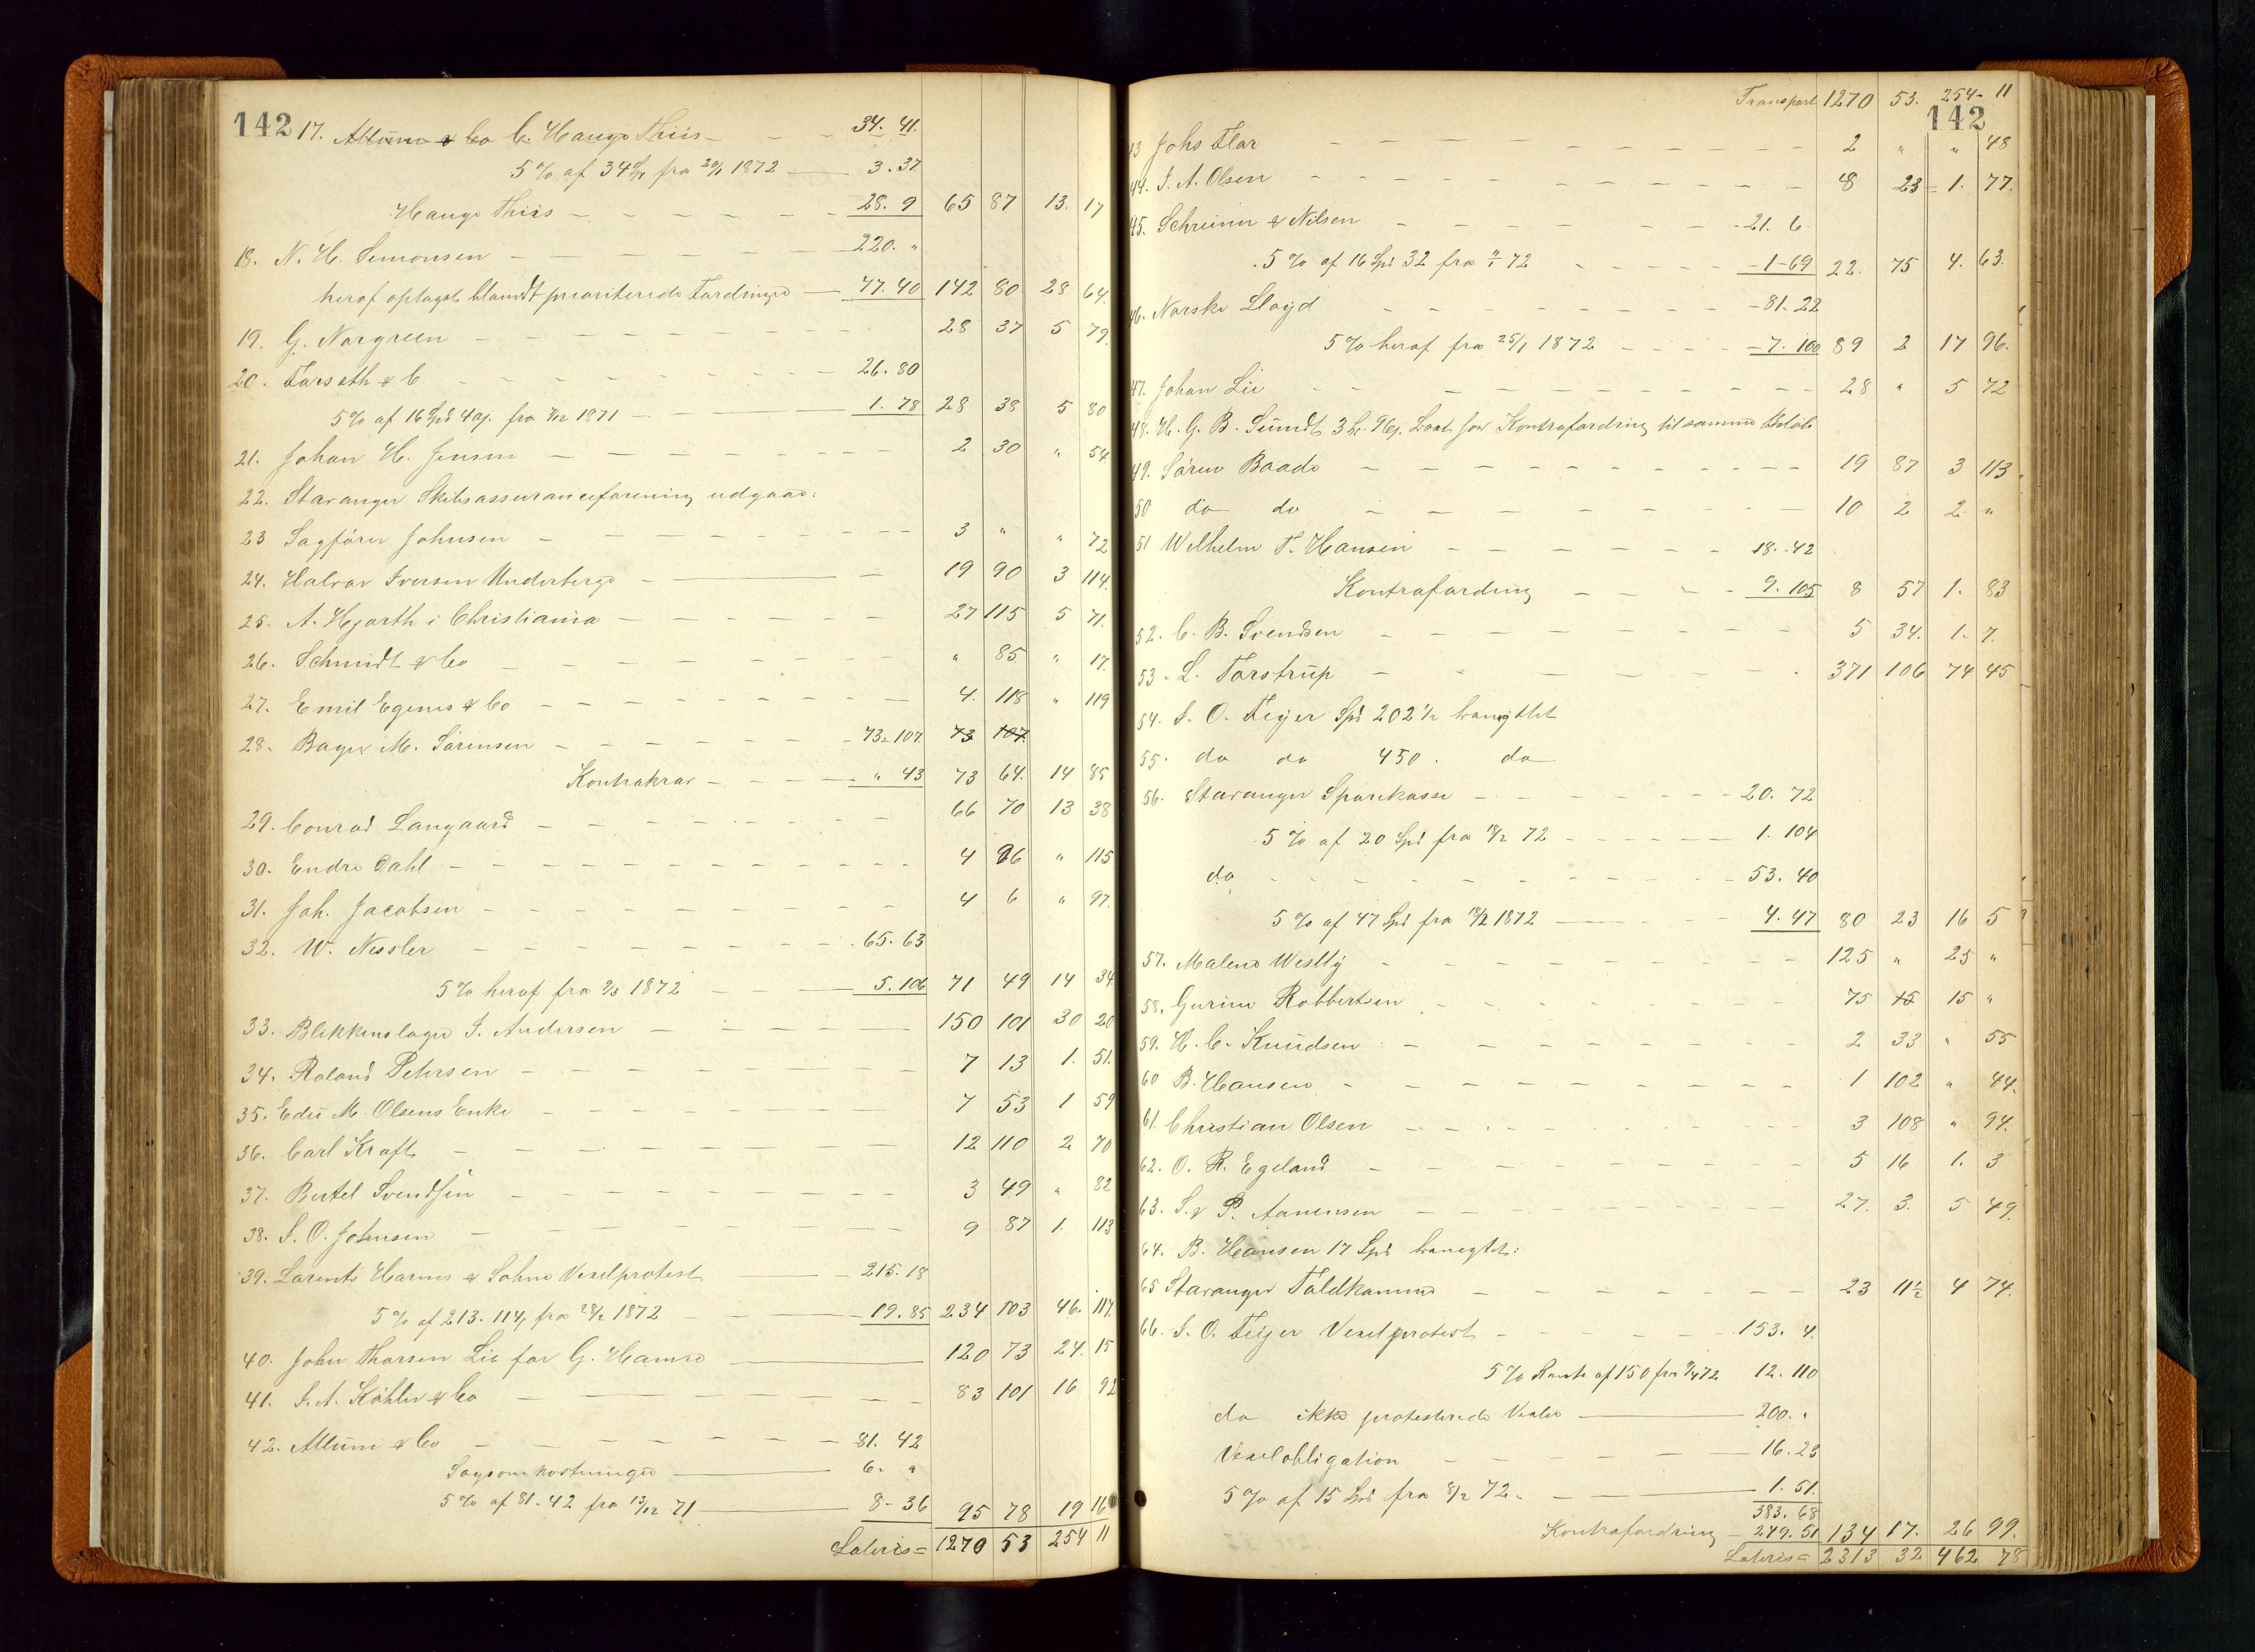 142 17. Attum & Co C. Haugo Thiis 34. 41.
5% af 34 fra 20/1 1872 3. 37
Haugo Thiis 28. 9 65 87 13. 17
18. N. H. Simonsen 220. "
heraf optaget blandt prioriterede Fordringer 77. 40 142 80 28 64.
19. G. Norgreen 28 37 5 79.
20. Farseth & C 26. 80
5% af 16 Spd 40β. fra 1871 1. 78 28 38 5 80
21. Johan H. Jensen 2 30 " 54
22. Stavanger Skibsassuranceforening udgaar:
23 Sagfører Johnsen 3 " " 72
24. Halvor Iversen Underberge 19 90 3 114.
25. A. Hjorth i Christiania 27 115 5 71.
26. Schmidt & Co " 85 " 17.
27. Emil Egenes & Co 4. 118 " 119
28. Bager M. Sørensen 73. 107. 73 107.
Kontrakrav " 43 73 64. 14 85
29. Conrad Langaard 66 70 13 38
30. Endre Dahl 4 96 " 115
31. Joh. Jacobsen 4 6 " 97.
32. W. Nessler 65. 63
5% heraf fra 1872 5. 106 71 49 14 34
33. Blikkenslager I. Andersen 150 101 30 20
34. Roland Petersen 7 13 1. 51.
35. Edle M. Olsens Enke 7 53 1 59
36. Carl Kraft 12 110 2 70
37. Bertel Svendsen 3 49 " 82
38. S. O. Johnsen 9 87 1. 113
39. Larents Harms & Søhns Vexelprotest 215. 18
5% af 213. 114 fra 28/2 1872 19. 85 234 103 46. 117.
40. John Thorsen Lie for G. Hamre 120 73 24. 15
41. I. A. Köhler & Co 83 101 16 92
42. Attum & Co 81. 42
Sagsomkostninger 6. "
5% af 81-42 fra 13/12 71 8-36 95 78 19 16
Lateris = 1270 53 254 11
Transport 1270 53. 254- 11
142
43 Johs Flor 2 " " 48
44. I. A. Olsen 8 23 1. 77.
45. Schreiner & Nilsen 21. 6
5% af 16 Spd 32 fra 72 1-69 22. 75 4. 63.
46. Norske Lloyd 81. 22
5% heraf fra 25/1 1872 7. 100 89 2 17 96.
47. Johan Lie 28 " 5 72
48. H. G. B. Sundt Kontrafordring til samme Beløb
49. Søren Baade 19 87 3 113
50 do do 10 2 2 "
51 Wilhelm T. Hansen 18. 42
Kontrafordring 9. 105 8 57 1. 83
52. C. B. Svendsen 5 34. 1. 7.
53. L. Torstrup 371 106 74 45
54. S. O. Feyer Spd 202 1/2 benegtet
55. do do 450. do
56. Stavanger Sparekasse 20. 72
5% af 20 Spd fra 72 1. 104
do 53. 40
5% af 47 Spd fra 1872 4. 47 80 23 16 5
57. Malene Westly 125 " 25 "
58. Gurine Robbertsen 75 15 15 "
59. H. C. Knudsen 2 33 " 55
60 B. Hansen 1 102 " 44.
61. Christian Olsen 3 108 " 94.
62. O. R. Egeland 5 16 1. 3
63. S. & P. Aanensen 27. 3. 5 49.
64. B. Hansen 17 Spd benegtet:
65 Stavanger Toldkammer 23 11 1/2 4 74.
66. S. O. Feyer Vexelprotest 153. 4.
5% Rente af 150 fra 72 12. 110
do ikke protesterede Vexler 200. "
Vexelobligation 16. 23
5% af 15 Spd fra 8/2 72. 1. 51.
383. 68
Kontrafordring 249. 51 134 17. 26 99.
Lateris = 2313 32 462 78